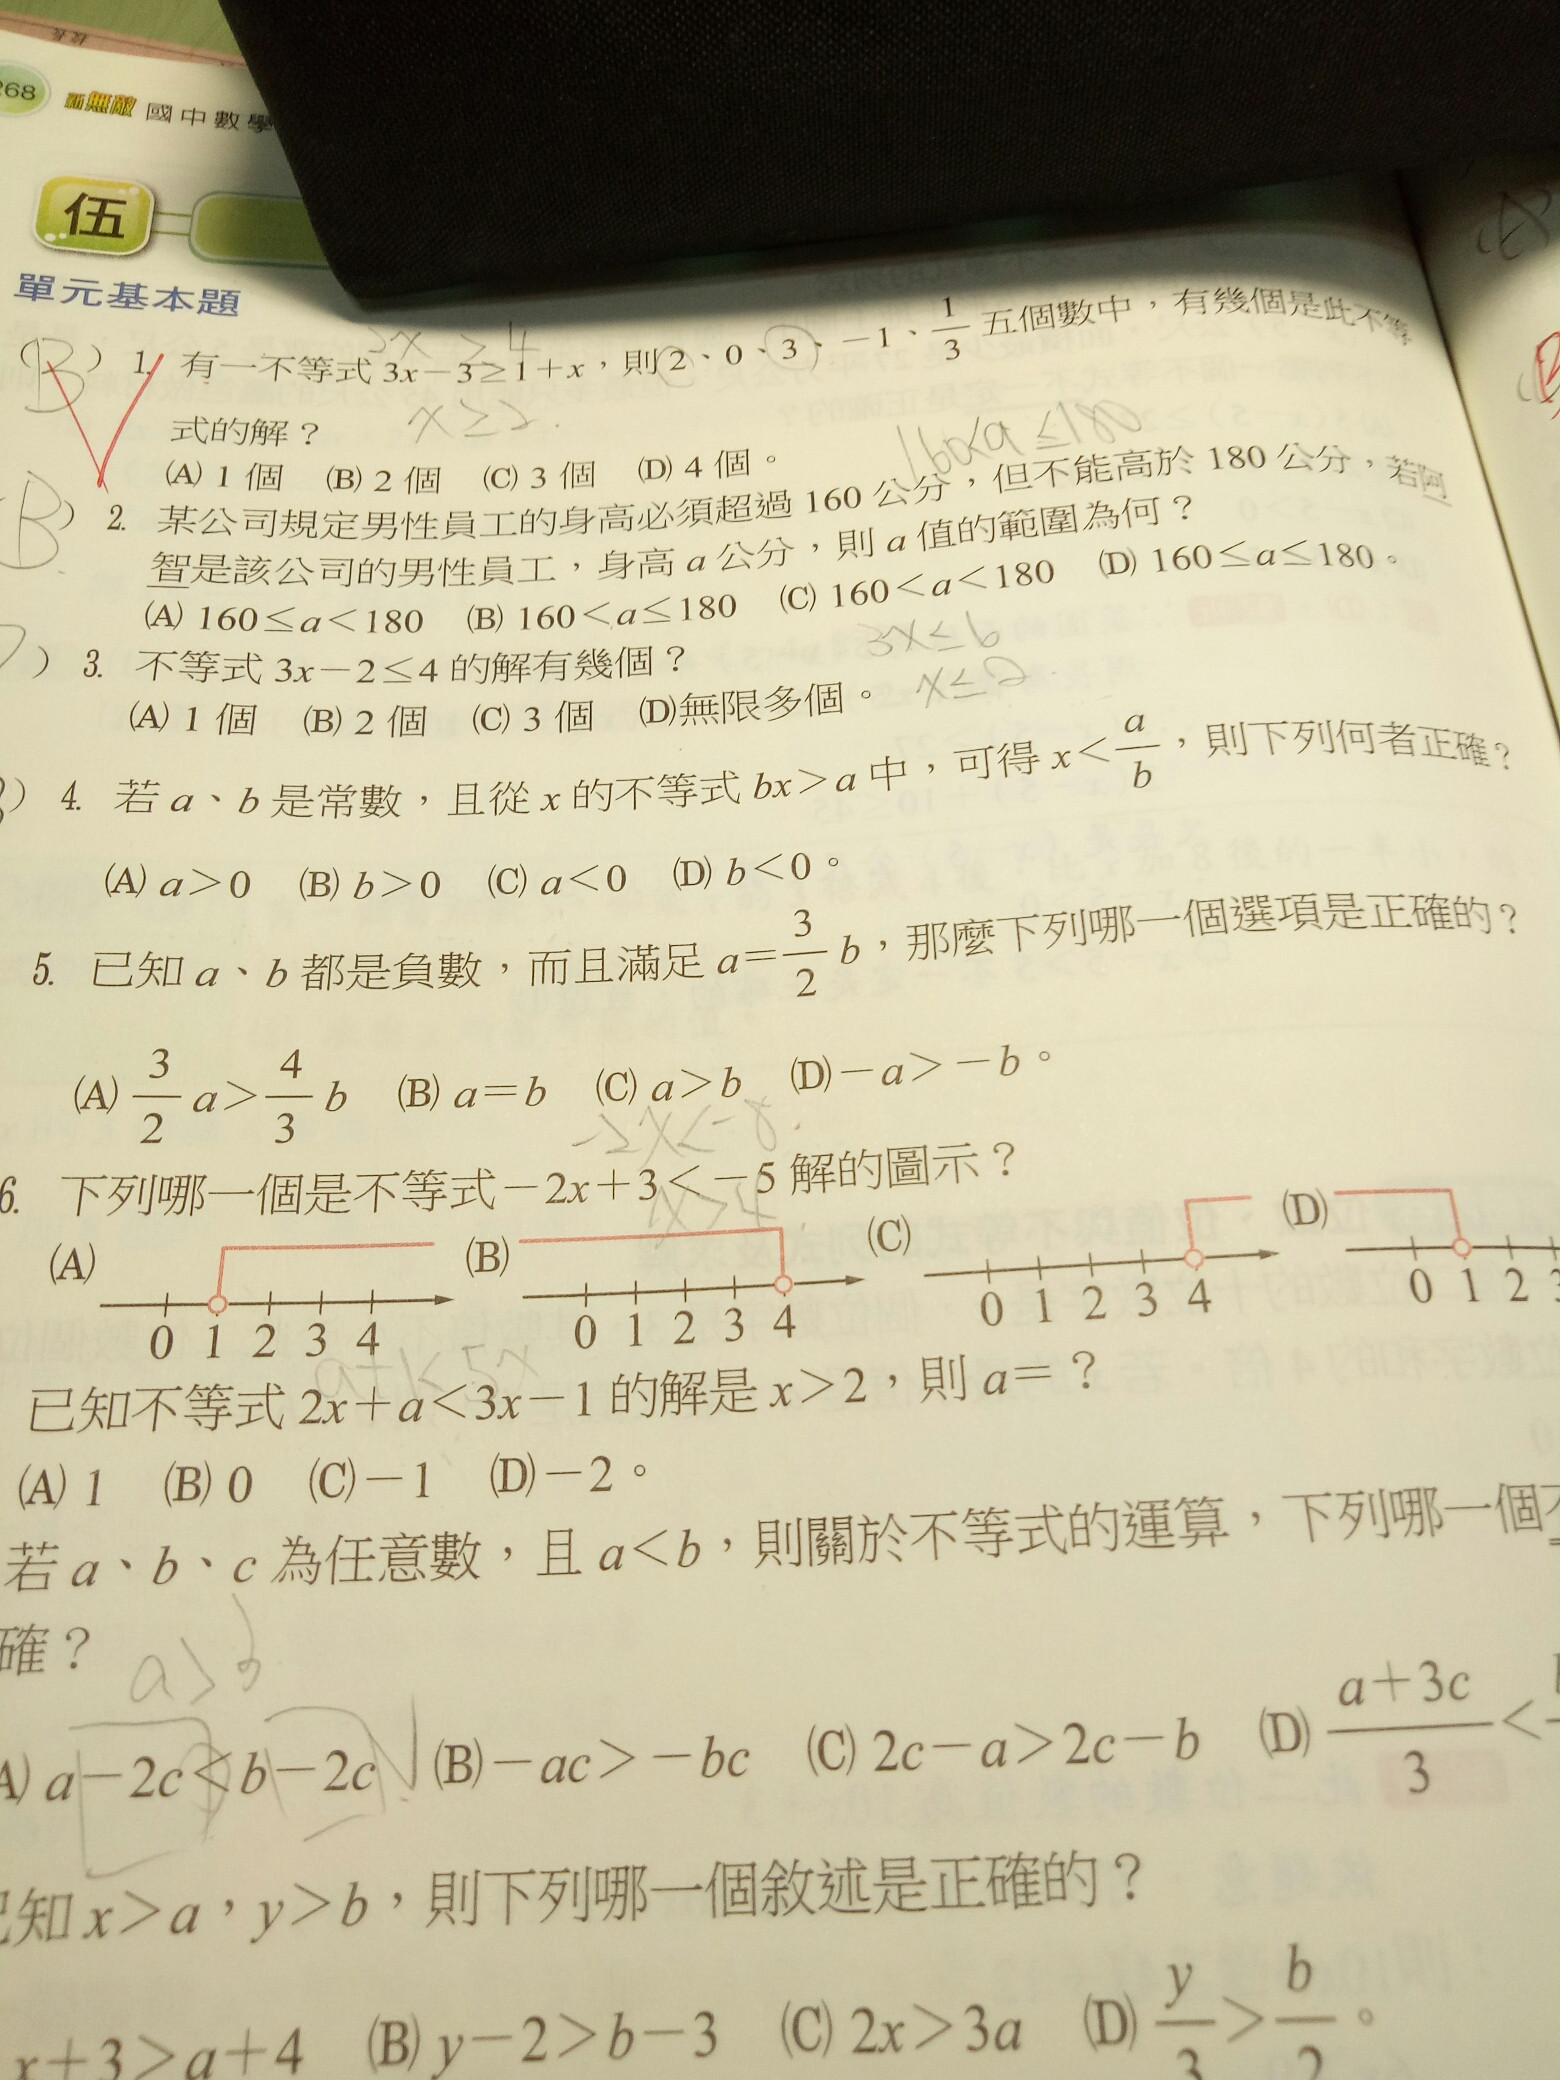 268 新無敵 國中數學
伍
單元基本題
3x > 4
(B) 1. 有一不等式 3x－3≥1＋x，則 2、0、3、－1、1/3 五個數中，有幾個是此不等
式的解？ x≥2.
(A) 1 個 (B) 2 個 (C) 3 個 (D) 4 個。
160<a≤180
(B) 2. 某公司規定男性員工的身高必須超過 160 公分，但不能高於 180 公分，若阿
智是該公司的男性員工，身高 a 公分，則 a 值的範圍為何？
(A) 160≤a＜180 (B) 160＜a≤180 (C) 160＜a＜180 (D) 160≤a≤180。
3x≤6
) 3. 不等式 3x－2≤4 的解有幾個？
x≤2
(A) 1 個 (B) 2 個 (C) 3 個 (D)無限多個。
) 4. 若 a、b 是常數，且從 x 的不等式 bx＞a 中，可得 x＜a/b，則下列何者正確？
(A) a＞0 (B) b＞0 (C) a＜0 (D) b＜0。
5. 已知 a、b 都是負數，而且滿足 a＝3/2 b，那麼下列哪一個選項是正確的？
(A) 3/2 a＞4/3 b (B) a＝b (C) a＞b (D)－a＞－b。
-2x<-8.
6. 下列哪一個是不等式－2x＋3＜－5 解的圖示？
x>4
(A) (B) (C) (D)
0 1 2 3 4 0 1 2 3 4 0 1 2 3 4 0 1 2 3
a+1<5x
已知不等式 2x＋a＜3x－1 的解是 x＞2，則 a＝？
(A) 1 (B) 0 (C)－1 (D)－2。
若 a、b、c 為任意數，且 a＜b，則關於不等式的運算，下列哪一個不
確？
a>b
A) a－2c＜b－2c (B)－ac＞－bc (C) 2c－a＞2c－b (D) a＋3c/3＜
已知 x＞a，y＞b，則下列哪一個敘述是正確的？
x＋3＞a＋4 (B) y－2＞b－3 (C) 2x＞3a (D) y/3＞b/2。